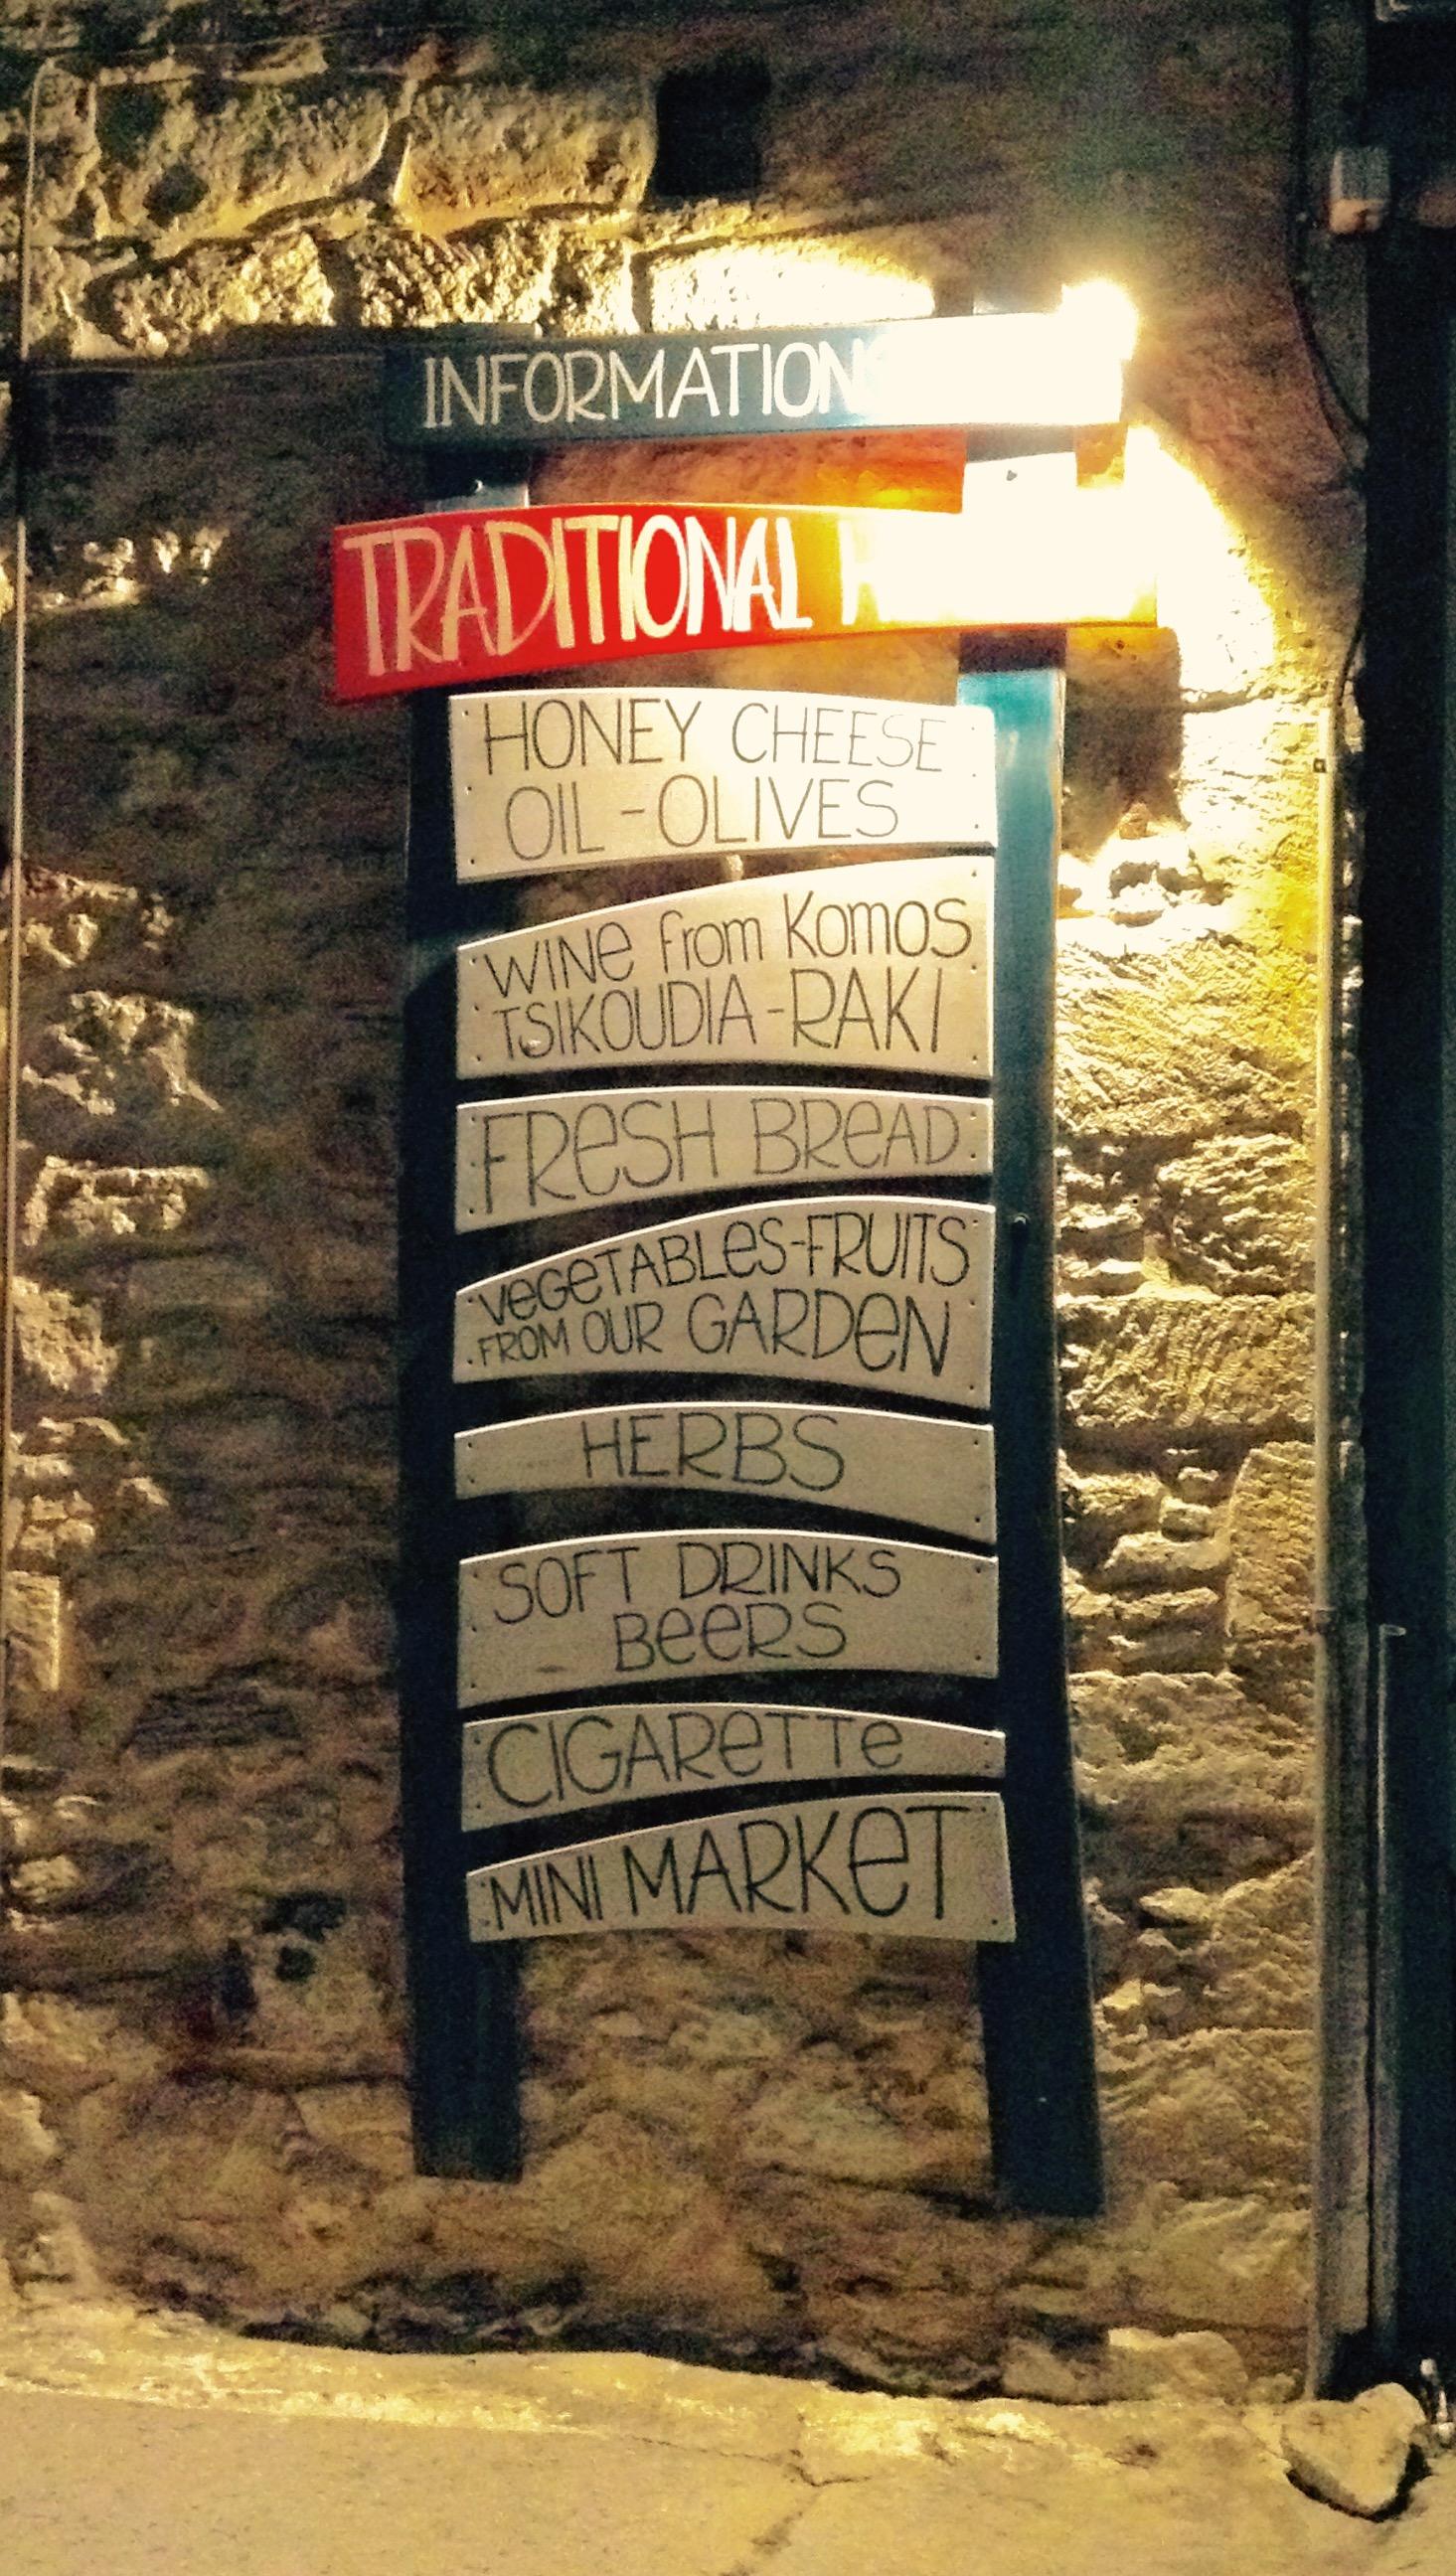 INFORMATION
TRADITIONAL
HONEY CHEESE
OIL-OLIVES
WINe from Komos
TSIKOUDIA-RAKI
FReSH BReAD
VeGeTABLeS-FRUITS
FROM OUR GARDeN
HERBS
SOFT DRINKS
BeeRS
CIGAReTTe
MINI MARKeT